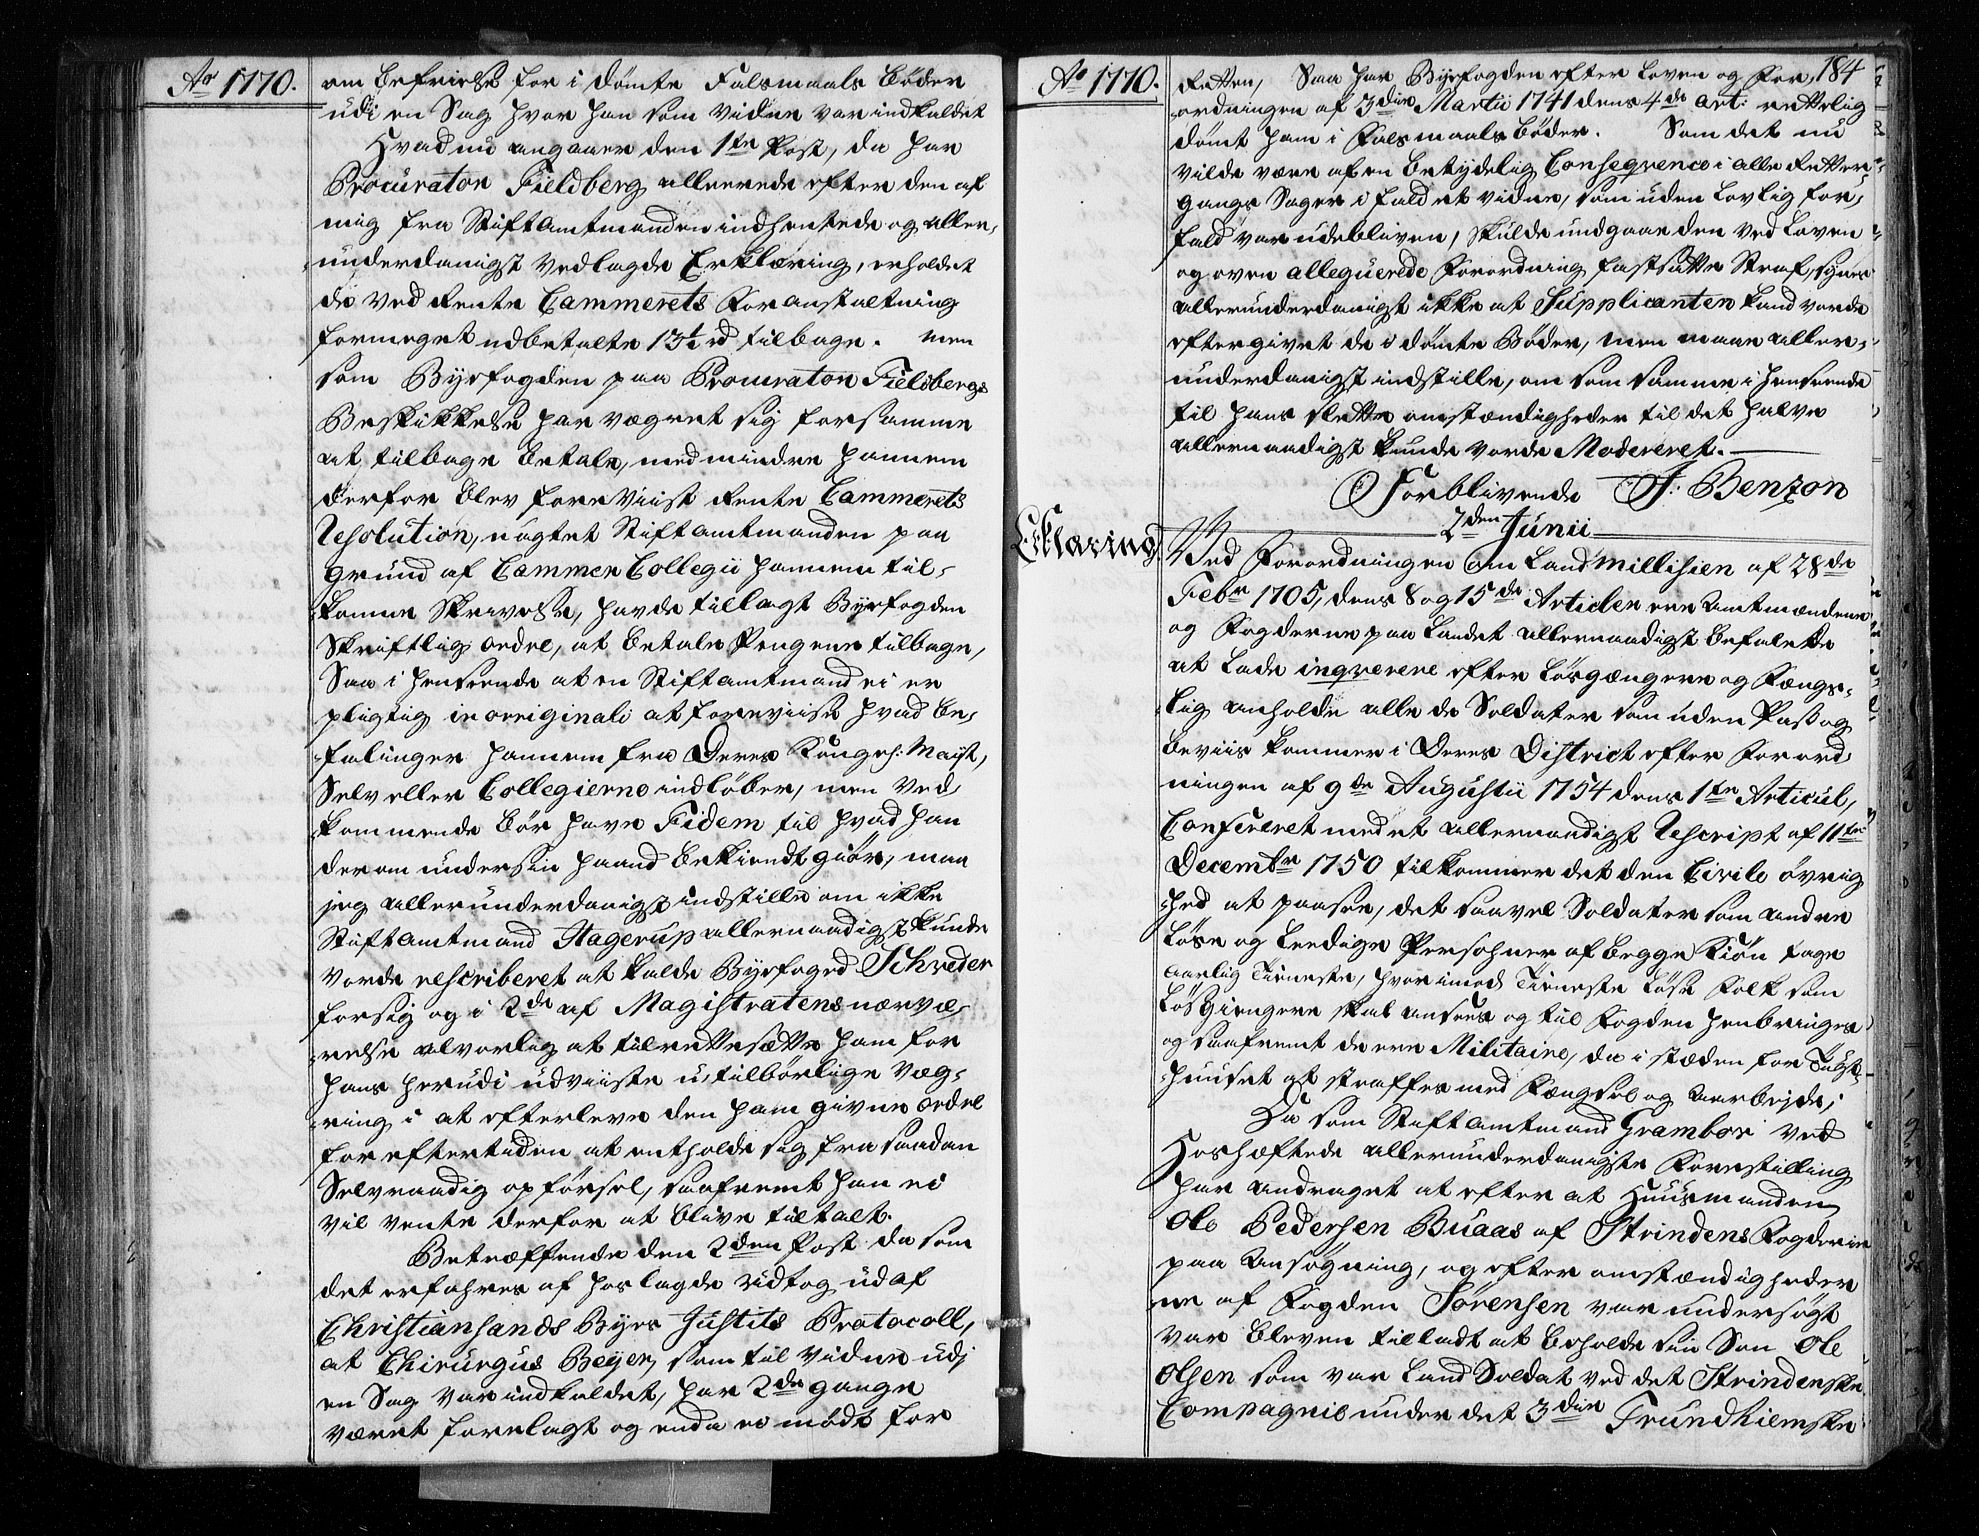 Ao 1770.
om befrielse for i dømte Falsmaals bøder
udi en Sag hvor han som vidne var indkaldet
Hvad nu angaaer den 1te Post, da har
Procurator Fieldberg allerede efter den af
mig fra Stiftamtmanden indhentede og aller-
underdanigst vedlagde Erklæring, erholdet
de ved Rente Cammerets Foranstaltning
formeget udbetalte 13½ rd tilbage. men
som Byefogden paa Procurator Fieldbergs
Beskikkelse har vægret sig for samme
at tilbage betale, med mindre hannem
derfor blev foreviist Rente Cammerets
Resolution, uagtet Stiftamtmanden paa
grund af Cammer Collegii hannem til-
komne Skrivelse, havde tillagt Byefogden
Skriftlig ordre, at betale Pengene tilbage,
Saa i henseende at en Stiftamtmand ei er
pligtig in originali at foreviise hvad be-
falinger hannem fra Deres Kongel: Mayst,
Selv eller Collegierne indløber, men ved-
kommende bør have Fidem til hvad han
derom under sin haand bekiendtgiør, maa
jeg allerunderdanigst indstille om ikke
Stiftamtmand Hagerup allernaadigst kunde
vorde rescriberet at kalde Byefoged Schreder
for sig og i 2de af Magistratens nærvæ-
relse alvorlig at tilrettesætte ham for
hans herudi udviiste u-tilbørlige væg-
ring i at efterleve den ham givne ordre
for eftertiden at entholde sig fra saadan
Selvraadig opførsel, saafremt han ei
vil vente derfor at blive tiltalt.
Betræffende den 2den Post da som
det erfahres af hoslagde vidtog ud af
Christiansands Byes Justits Protocoll,
at Chirurgus Beyer, som til vidne udj
en Sag var indkaldet, har 2de gange
været forelagt og enda ei mødt for
Ao 1770.
184
Retten, Saa har Byefogden efter loven og For-
ordningen af 3die Martii 1741 dens 4de art: rettelig
dømt ham i Falsmaals bøder. Som det nu
vilde være af en betydelig Conseqvence i alle Retter-
gangs Sager i fald et vidne, som uden lovlig for-
fald var udebliven, skulde undgaae den ved loven
og oven alleguerede Forordning fastsatte Straf, synes
allerunderdanigst ikke at Supplicanten kand vorde
eftergivet de i dømte Bøder, men maae aller-
underdanigst indstille, om som samme i henseende
til hans slette omstændigheder til det halve
allernaadigst kunde vorde Modereret.
Forblivende J: Benzon
2den Junii
Erklæring
Ved Forordningen om Land Millisien af 28de
Febr 1705, dens 8 og 15de Articler ere Amtmændene
og Fogderne paa Landet allernaadigst befalede
at lade inqverere efter Løsgængere og Fængs-
lig anholde alle de Soldater som uden Pass og
beviis kommer i Deres District efter Forord-
ningen af 9de Augustii 1754 dens 1te Articul,
Confereret med et allernaadigst Rescript af 11te
Decembr 1750 tilkommer det den Civile øvrig-
hed at paasee, det saavel Soldater som andre
løse og leedige Persohner af begge Kiøn tage
aarlig Tieneste, hvorimod Tieneste løse Folk som
Løsgiengere skal ansees og til Fogden henbringes
og saafremt de ere Militaire, da i stæden for Tugt-
huuset at straffes med Fængsel og Arbejde;
Da som Stiftamtmand Grambov ved
Hoshæftede allerunderdanigste Forestilling
har andraget at efter at Huusmanden
Ole Pedersen Buaas af Strindens Fogderie
paa Ansøgning, og efter omstændigheder
ne af Fogden Sørensen var undersøgt
var bleven tilladt at beholde sin Søn Ole
Olsen som var Land Soldat ved det Strindenske
Compagnie under det 3die Trundhiemske